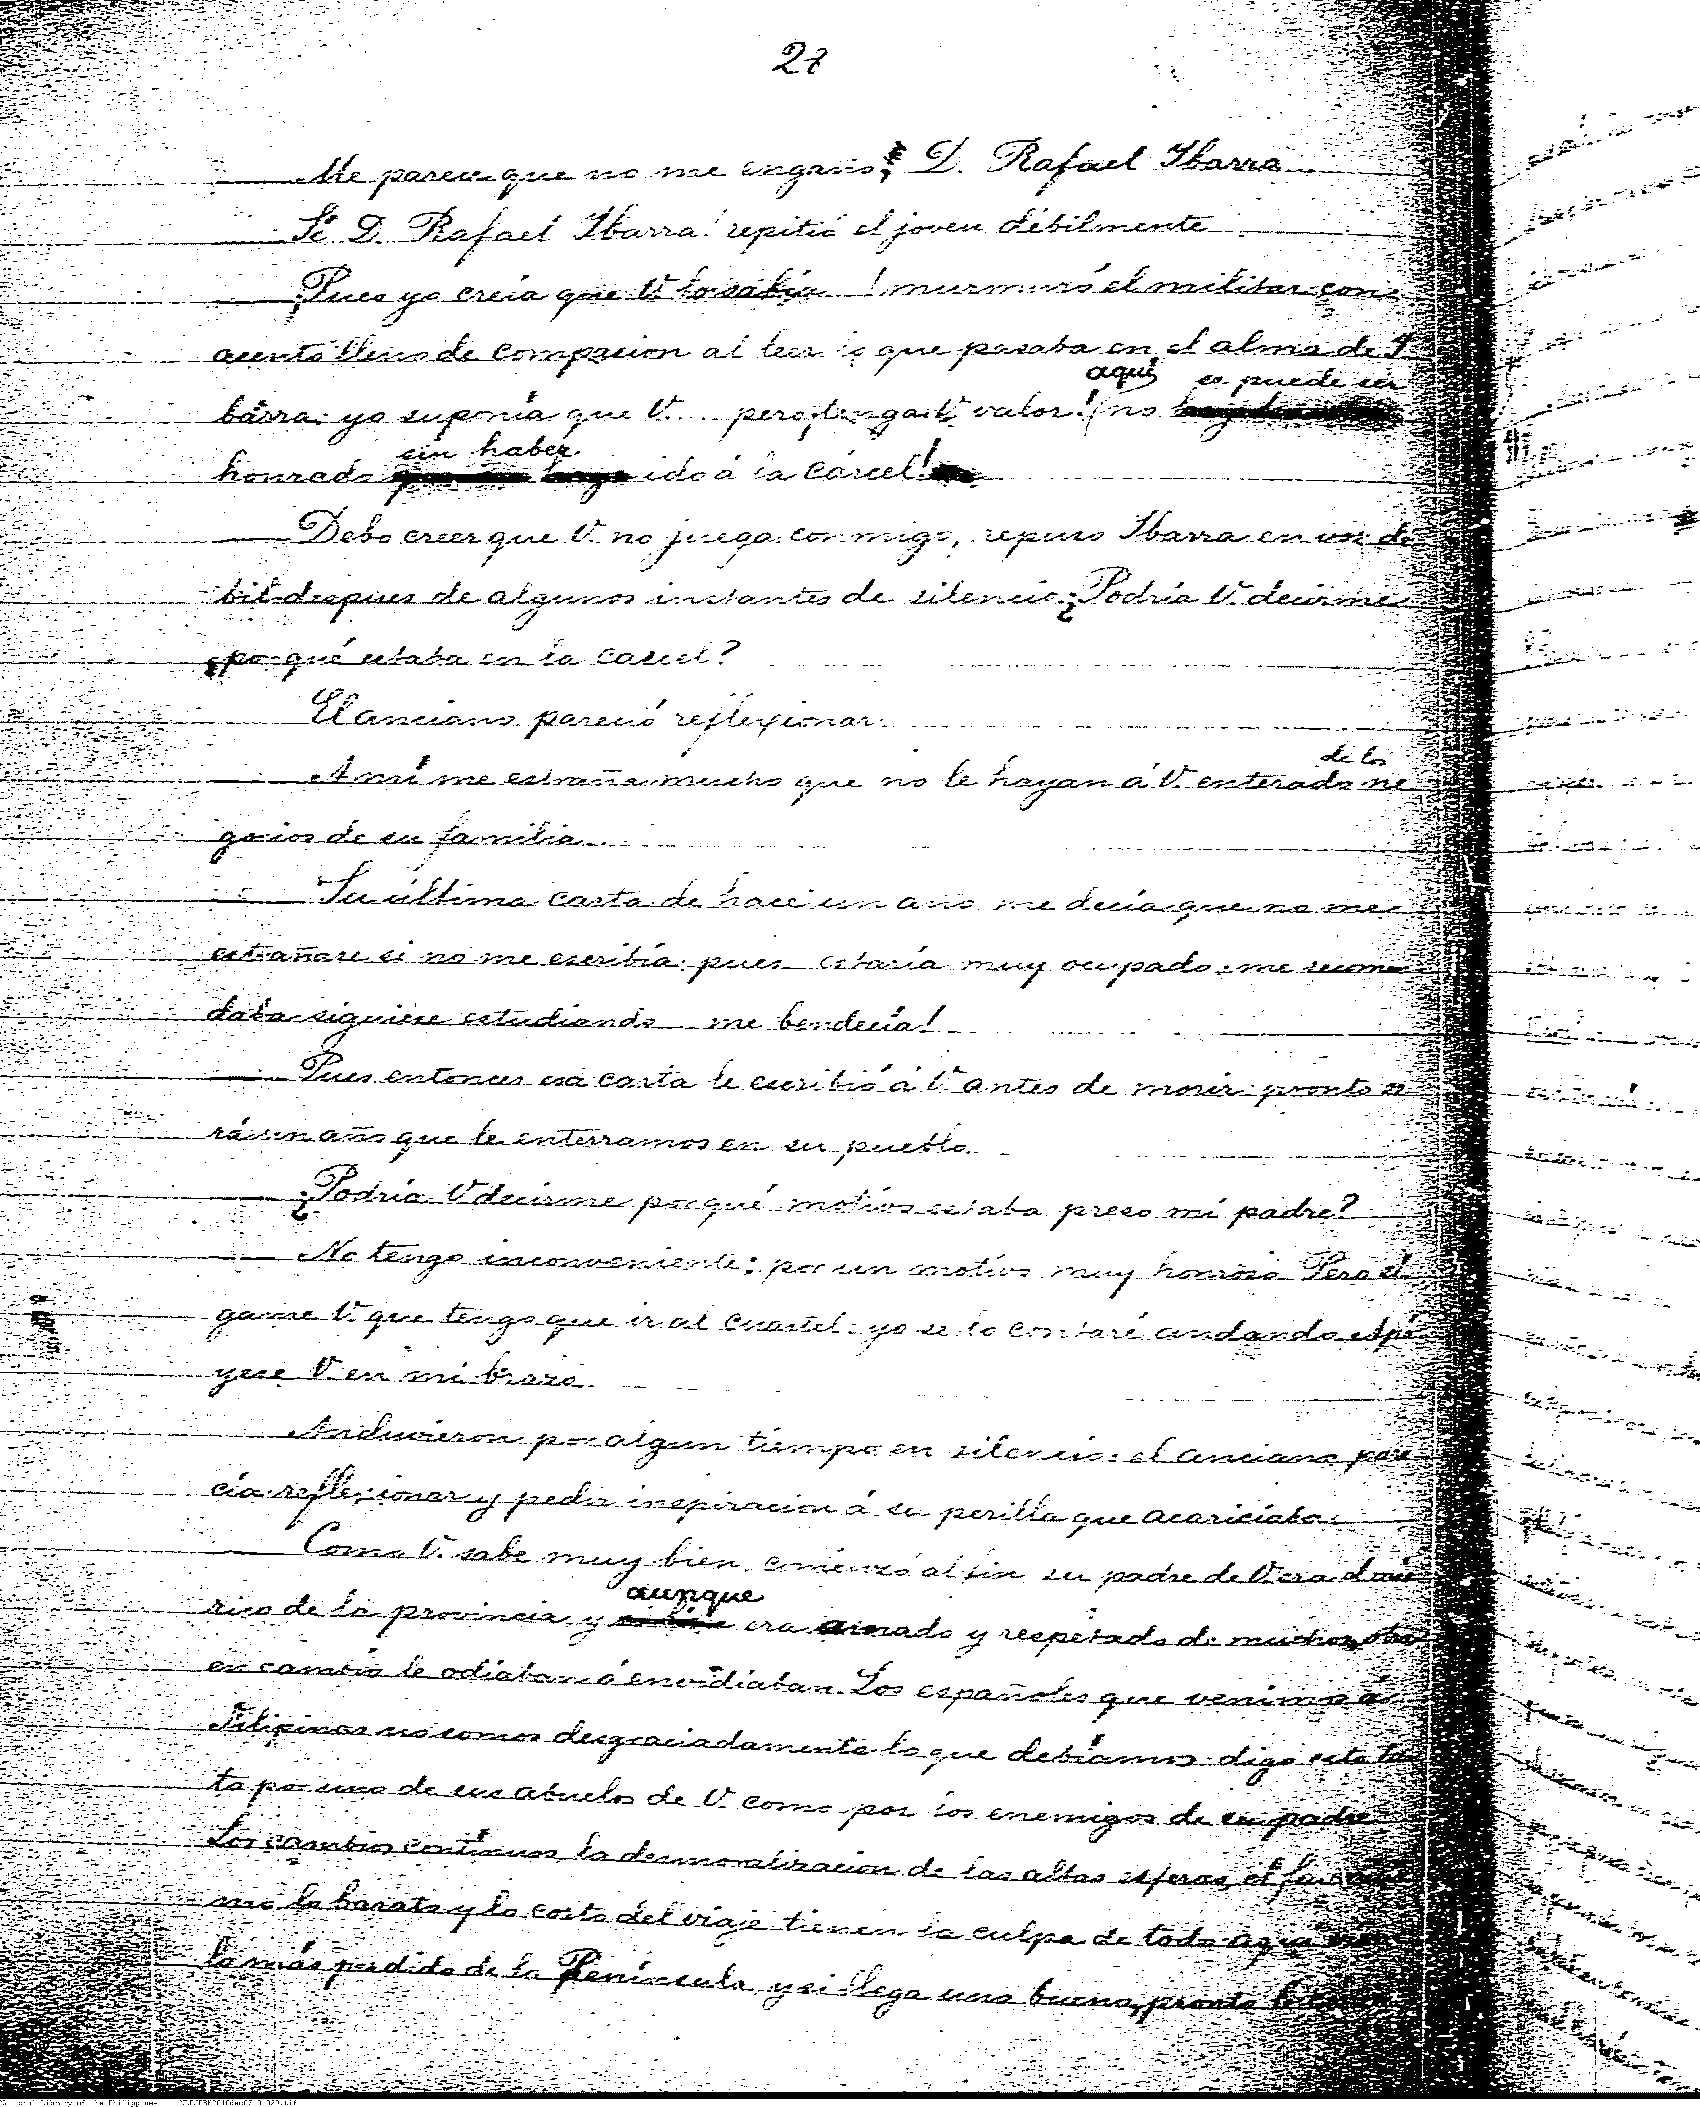 27
— Me parece que no me engaño; D. Rafael Ibarra
Sí D. Rafael Ibarra! repitió el joven débilmente
— ¡Pues yo creía que V. lo sabía! murmuró el militar con
acento lleno de compasion al leer lo que pasaba en el alma de I
barra: yo suponía que V... pero, tenga V. valor! aquí no se puede ser
honrado sin haber ido á la cárcel!
— Debo creer que V. no juega conmigo, repuso Ibarra en voz dé
bil despues de algunos instantes de silencio. ¿Podría V. decirme
por qué estaba en la carcel?
El anciano pareció reflexionar.
— A mí me estraña mucho que no le hayan á V. enterado de los ne
gocios de su familia.
— Su última carta de hace un año me decía que no me
estrañase si no me escribía, pues estaría muy ocupado; me recomen
daba siguiese estudiando me bendecía!
— Pues entonces esa carta le escribió á V. antes de morir: pronto se
rá un año que le enterramos en su pueblo.
— ¿Podría V. decirme por qué motivo estaba preso mi padre?
— No tengo inconveniente: por un motivo muy honroso. Pero sí
game V. que tengo que ir al cuartel: yo se lo contaré andando. Apó
yese V. en mi brazo.
Anduvieron por algun tiempo en silencio: el anciano pare
cía reflexionar y pedir inspiracion á su perilla que acariciaba.
— Como V. sabe muy bien, comenzó al fin, su padre de V. era el más
rico de la provincia, y aunque era amado y respetado de muchos, otros
en cambio le odiaban ó envidiaban. Los españoles que venimos á
Filipinas no somos desgraciadamente lo que debíamos: digo esto tan
to por uno de sus abuelos de V. como por los enemigos de su padre.
Los cambios contínuos, la desmoralizacion de las altas esferas, el favoritis
mo, lo barato y lo corto del viaje tienen la culpa de todo: aquí viene
lo más perdido de la Península, y si llega uno bueno, pronto le